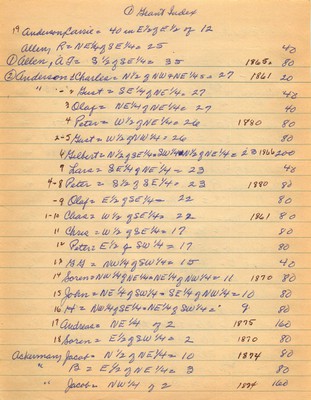 ① Grant Index
19 Anderson, Carrie = 40 in E½ of E½ of 12
Allen, R = NE¼ of SE¼ = 25 40
① Allen, A.J = S½ of S½ = 35 1865 80
② Anderson Charles = N½ of NW = 27 1861 20
" " Gust = SE¼ of NE¼ = 27 40
3 Olaf = NE¼ of NE¼ = 27 40
4 Peter = W½ of NE¼ = 26 1880 80
2-5 Gust = W½ of NW¼ = 26 80
6 Gilbert = N½ of SE¼ = SW¼ N½ of NE¼ = 23 1866 200
9 Lars = SE¼ of NE¼ = 23 40
4-8 Peter = S½ of SE¼ = 23 1880 80
-9 Olaf = E½ of SE¼ = 22 80
1-10 Claus = W½ of SE¼ = 22 1861 80
11 Chris = W½ of SE¼ = 17 80
12 Peter = E½ of SW¼ = 17 80
13 B H = NW¼ of SW¼ = 15 40
14 Soren = NW¼ of NE¼ = NE¼ of NW¼ = 11 1870 80
15 John = NE¼ of SW¼ = SE¼ of NW¼ = 10 80
16 H = NW¼ of SE¼ = NE¼ of SW¼ = 9 80
17 Andreas = NE¼ of 2 1875 160
18 Soren = E½ of SE¼ = 2 1870 80
Ackerman, Jacob = N½ of NE¼ = 10 1874 80
" B = E½ of NE¼ = 3 80
" Jacob = NW¼ of 2 1874 160